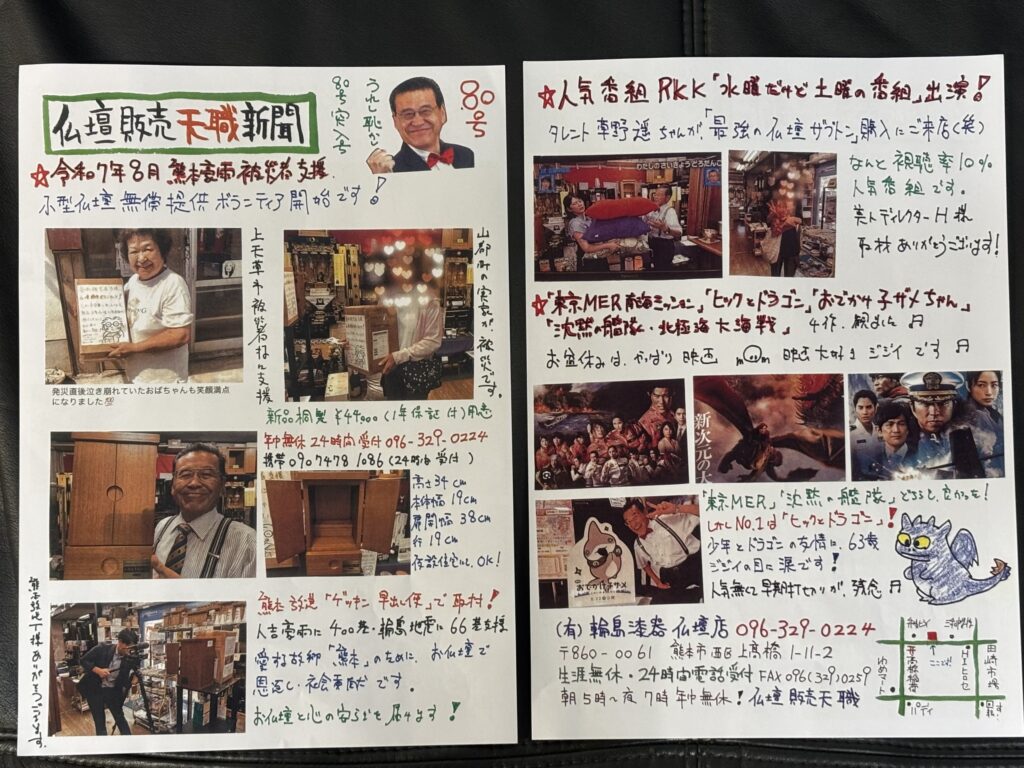 仏壇販売天職新聞
うれし恥かし
80号突入号
80号
☆令和7年8月 熊本豪雨被災者支援
小型仏壇無償提供ボランティア開始です!
上天草市被災者様に支援
山都町の実家が被災です。
発災直後泣き崩れていたおばちゃんも笑顔満点
になりました
新品桐製 ¥44,000(1年保証付)用意
年中無休24時間受付 096-329-0224
携帯 090 7478 1086 (24時間受付)
高さ34cm
本体幅19cm
扉開幅38cm
行19cm
仮設住宅にOK!
熊本放送「ゲツキン 早出し便」で取材!
人吉豪雨に400基・輪島地震に66基支援
愛する故郷「熊本」のために、お仏壇で
恩返し・社会貢献です。
お仏壇と心の安らぎを届けます!
ありがとうございます。
☆人気番組 RKK「水曜だけど土曜の番組」出演!
タレント 遥ちゃんが「最強の仏壇ザブトン」購入にご来店(笑)
わたしのさいきょうどろだんご
なんと視聴率10%
人気番組です。
美人ディレクターH様
取材ありがとうございます!
☆「東京MER 南海ミッション」「ヒックとドラゴン」「おでかけ子ザメちゃん」
「沈黙の艦隊・北極海大海戦」 4作、観ました♬
お盆休みは、やっぱり映画 映画大好きジジイです♬
新次元の
おでかけ子ザメ
「東京MER」「沈黙の艦隊」どちらも良かった!
しかしNo.1は「ヒックとドラゴン」!
少年とドラゴンの友情に、63歳
ジジイの目に涙です!
人気無くて早期打ち切りが、残念♬
(有)輪島漆器仏壇店 096-329-0224
〒860-0061 熊本市西区上高橋1-11-2
生涯無休・24時間電話受付 FAX 096(329)0259
朝5時〜夜7時年中無休!仏壇販売天職
ここだ!
高橋稲荷
ゆめマート
田崎市場